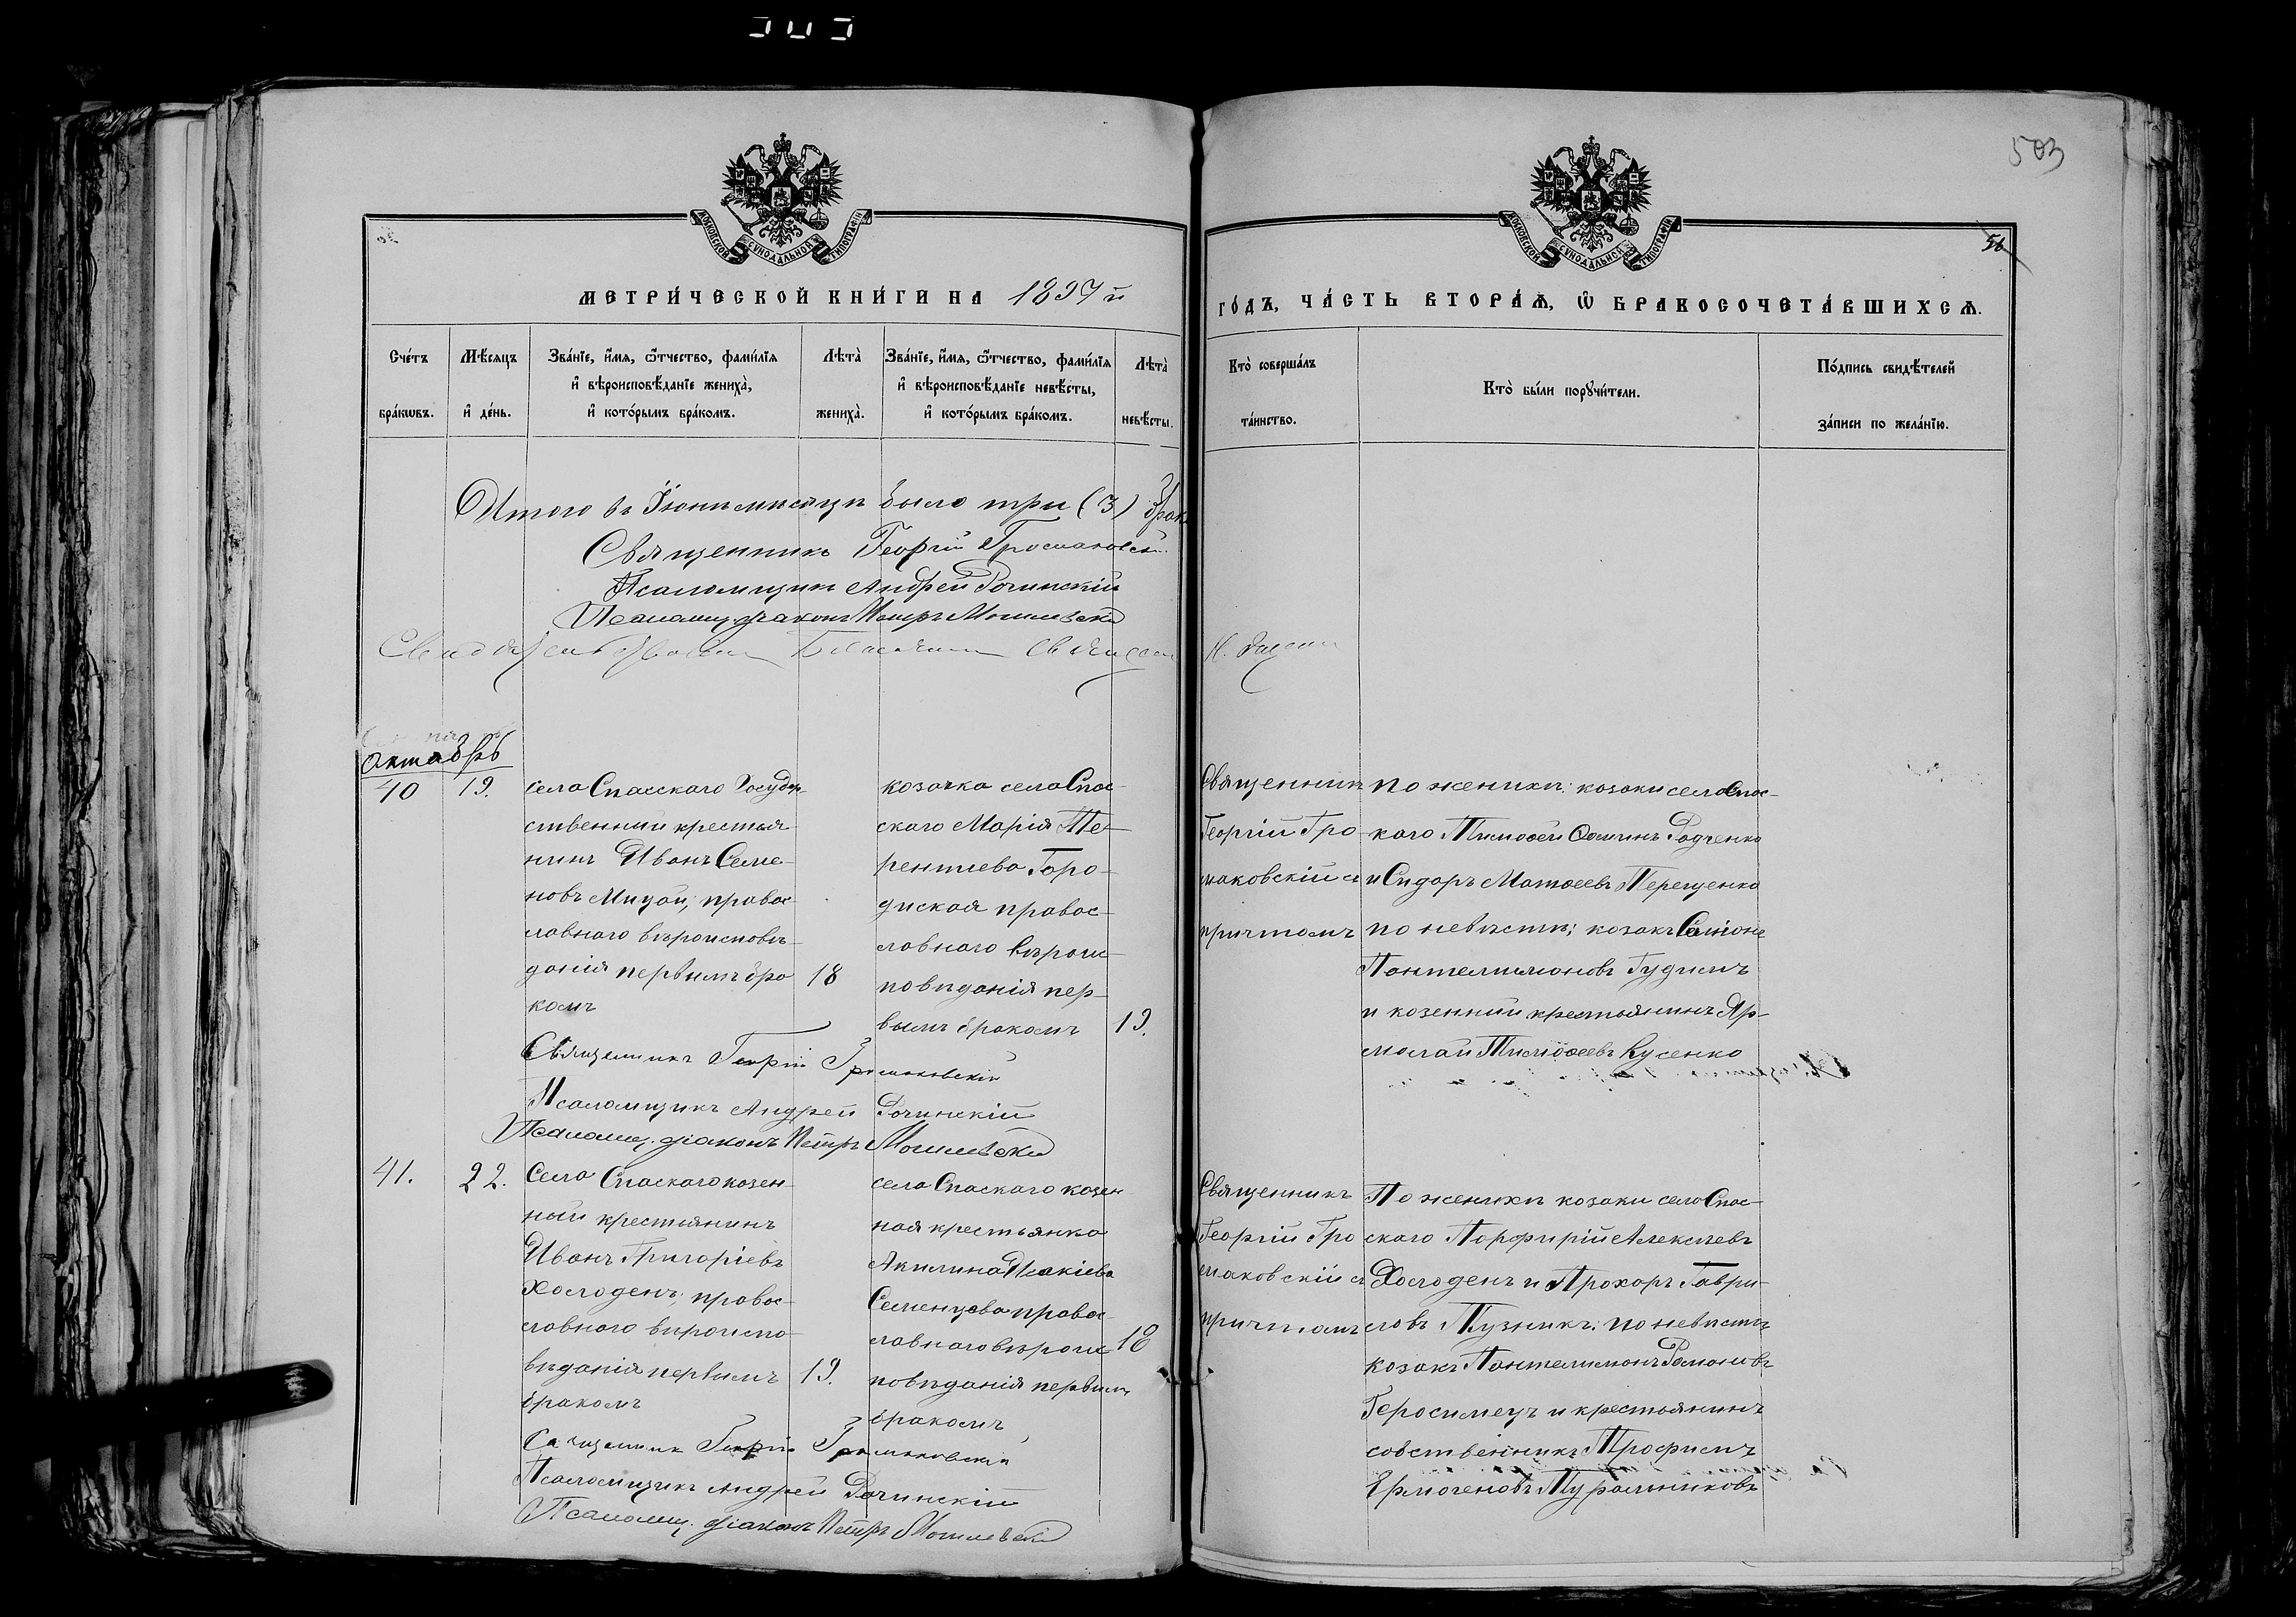 503
56
МОСКОВСКОЙ СѴНОДАЛЬНОЙ ТИПОГРАФІИ
МОСКОВСКОЙ СѴНОДАЛЬНОЙ ТИПОГРАФІИ
МЕТРИ́ЧЕСКОЙ КНИ́ГИ НА 1897 й
ГО́ДЪ, ЧА́СТЬ ВТОРА́Ѧ, Ѽ БРАКОСОЧЕТА́ВШИХСѦ.
Сче́тъ бра́кѡвъ.
Мѣ́сяцъ и҆ де́нь.
Зва́нїе, и҆́мѧ, ѻ҆́тчество, фами́лїѧ
и҆ вѣроисповѣ́данїе жениха̀,
и҆ кото́рымъ бра́комъ.
Лѣта̀ жениха̀.
Зва́нїе, и҆́мѧ, ѻ҆́тчество, фами́лїѧ
и҆ вѣроисповѣ́данїе невѣ́сты,
и҆ кото́рымъ бра́комъ.
Лѣта̀ невѣ́сты.
Кто̀ соверша́лъ та́инство.
Кто̀ бы́ли порꙋчи́тели.
По́дпись свидѣ́телей за́писи по жела́нїю.
Итого въ Іюнѣ мѣсяцѣ было три (3) брака
Священникъ Георгій Громаковскій
Псаломщикъ Андрей Рочинскій
Псаломщ. діаконъ Петръ Могилевскій
Октябрь
40
19.
села Спасскаго Государ-
ственный крестья-
нинъ Иванъ Семе-
новъ Мицай, правос-
лавнаго вѣроисповѣ-
данія первымъ бра
комъ
18
козачка села Спас-
скаго Марія Те-
рентиева Горо-
диская правос-
лавнаго вѣроис-
повѣданія пер-
вымъ бракомъ
19.
Священникъ
Георгій Гро-
маковскій съ
причтомъ
по женихѣ: козаки села Спас-
каго Тимофей Фоминъ Радченко
и Сидоръ Матфеевъ Терещенко
по невѣстѣ: козакъ Симіонъ
Пантелимоновъ Гудимъ
и козенный крестьянинъ Яр-
молай Тимофеевъ Кусенко
Священникъ Георгій Громаковскій
Псаломщикъ Андрей Рочинскій
Псаломщ. діаконъ Петръ Могилевскій
41.
22.
Села Спаскаго козен-
ный крестьянинъ
Иванъ Григоріевъ
Холоденъ, правос-
лавнаго вѣроиспо-
вѣданія первымъ
бракомъ
19.
села Спаскаго козен-
ная крестьянка
Акилина Исакіева
Семенцова правос-
лавнаго вѣроис
повѣданія первымъ
бракомъ
18
Священникъ
Георгій Гро
маковскій съ
причтомъ
По женихѣ козаки села Спас-
скаго Порфирій Алексѣевъ
Холоденъ и Прохоръ Гаври-
ловъ Тузникъ; по невѣстѣ
козакъ Пантелимонъ Романовъ
Геросимецъ и крестьянинъ
собственникъ Трофимъ
Ермогеновъ Туральниковъ
Священникъ Георгій Громаковскій
Псаломщикъ Андрей Рочинскій
Псаломщ. діаконъ Петръ Могилевскій